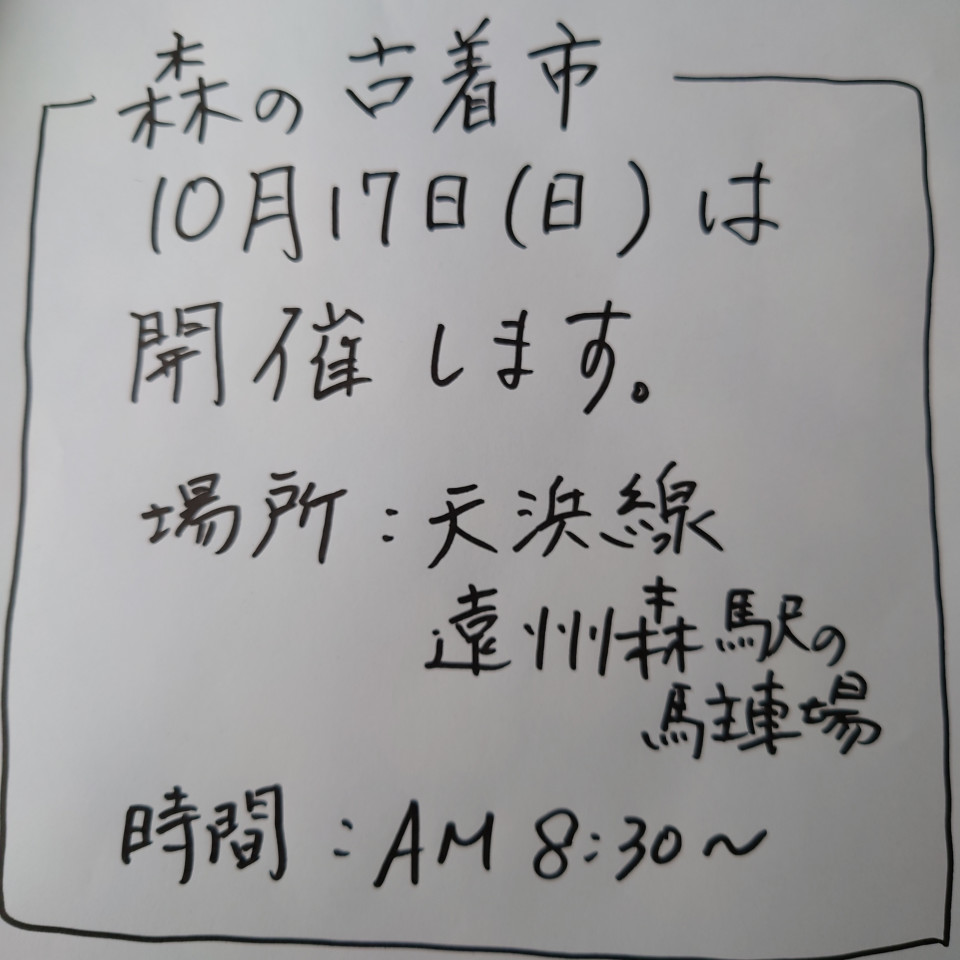 森の古着市
10月17日(日)は
開催します。
場所:天浜線
遠州森駅の
駐車場
時間:AM 8:30~